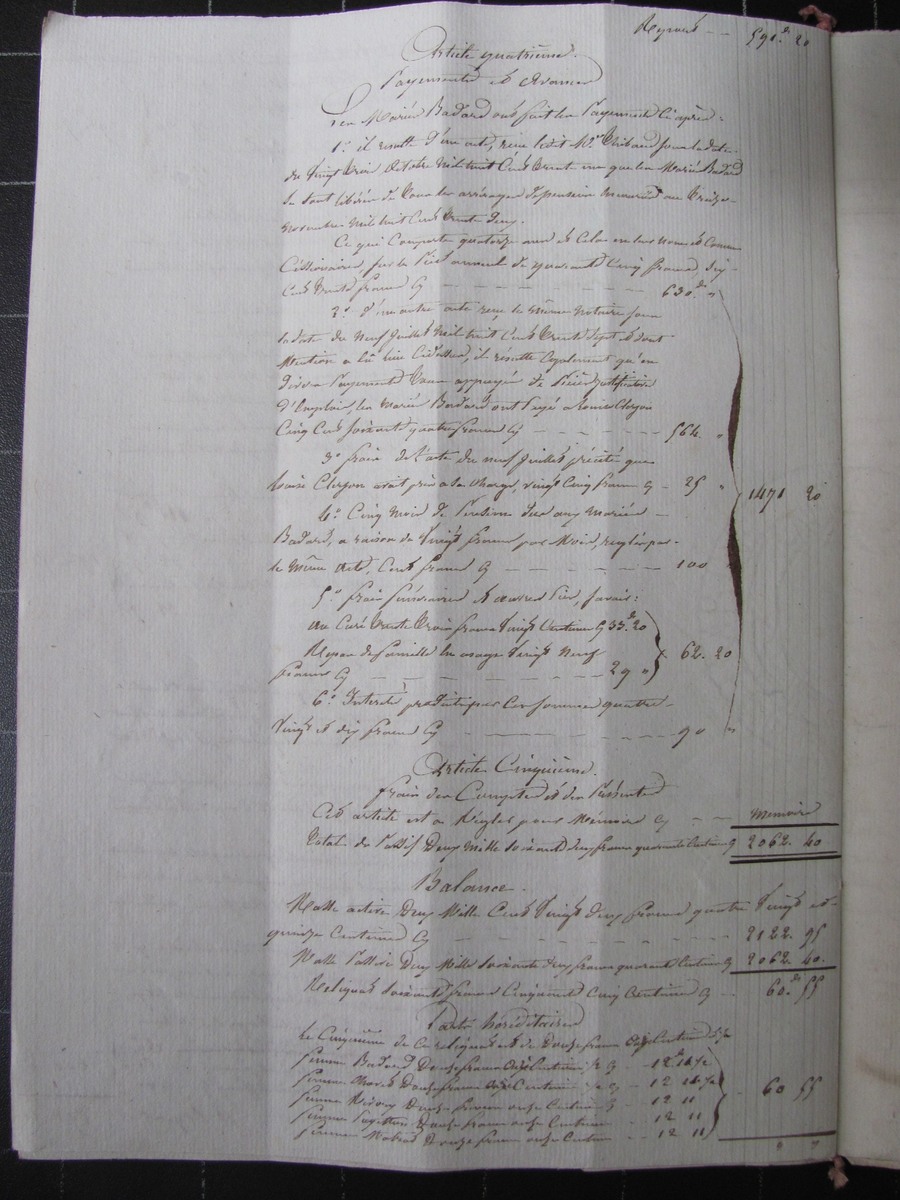 Report -- 591.f 20
Article quatrième.
Payements et avances
Les Mariés Badard ont fait les Payements ci après:
1.° il resulte d'un acte, reçu led. Mr. Thibaud sous la date
du Vingt trois Octobre mil huit Cent trente un que les Mariés Badard
se sont libérés de tous les arrérages de pension au treize
novembre mil huit Cent trente deux.
Ce qui Comporte quatorze ans et Cela en leur nom et Comme
Cessionnaires, sur le Pied annuel de quarante Cinq francs, Six
Cent trente francs Cy --- 630.f "
2.° d'un autre acte reçu le même Notaire sous
la date du Neuf Juillet mil huit Cent trente Sept et dont
Mention a été faite Cidessus, il resulte également qu'en
divers Payements tous appuyés de Pièces justificatives
d'Emploi, les Mariés Badard ont Payé a Louise Clerjon
Cinq Cent soixante quatre francs Cy --- 564. "
3.° frais de l'acte du neuf Juillet précité que
Louise Clerjon avait pris a sa charge, vingt Cinq francs Cy - 25 "
4.° Cinq Mois de Pension due aux Mariés
Badard, a raison de Vingt francs par Mois, réglés par
le même acte, Cent francs Cy --- 100
5.° frais funéraires et œuvres Pies, savoir:
au Curé trente trois francs Vingt Centimes Cy 33.f 20
Repas de famille en usage Vingt Neuf
francs Cy --- 29 " 62. 20
6.° Intérêts produits par Ces sommes quatre
Vingt et dix francs Cy --- 90 "
1471 20
Article Cinquième.
frais des Comptes et des Présentes
Cet article est a Régler pour Mémoire Cy -- Memoire
Total du Passif Deux Mille soixante deux francs quarante Centimes Cy 2062. 40
Balance.
Masse active Deux Mille Cent Vingt deux francs quatre Vingt et
quinze Centimes Cy --- 2122. 95
Masse Passive Deux Mille soixante deux francs quarante Centimes Cy 2062. 40.
Reliquat soixante francs Cinquante Cinq Centimes Cy -- 60.f 55
Parts héréditaires
Le Cinquième de Ce reliquat est de Douze francs Centimes
femme Badard Douze francs Centimes Cy - 12
femme Douze francs Centimes Cy - 12
femme Douze francs onze Centimes - 12 11
femme Douze francs onze Centimes - 12 11
femme Douze francs onze Centimes - 12 11
60 55